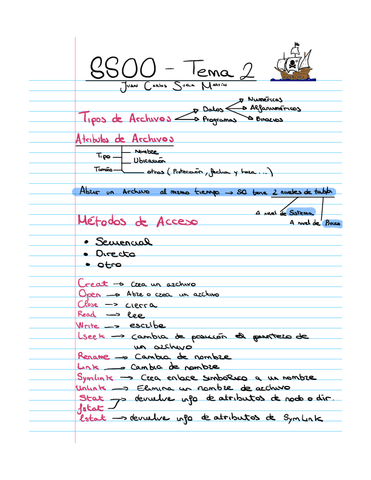 SSOO - Tema 2
Juan Carlos Suela Martín
Tipos de Archivos → Datos → Numéricos
Alfanuméricos
Programas → Binarios
Atributos de Archivos
Nombre
Tipo Ubicación
Tamaño otros (Protección, fecha y hora ...)
Abrir un Archivo al mismo tiempo → SO tiene 2 niveles de tabla
A nivel de Sistema
A nivel de Proceso
Métodos de Acceso
• Secuencial
• Directo
• otro
Creat → Crea un archivo
Open → Abre o crea un archivo
Close → cierra
Read → lee
Write → escribe
Lseek → Cambia de posición el puntero de
un archivo
Rename → Cambia de nombre
Link → Cambia de nombre
SymLink → Crea enlace simbólico a un nombre
Unlink → Elimina un nombre de archivo
Stat → devuelve info de atributos de nodo o dir.
fstat
Lstat → devuelve info de atributos de SymLink